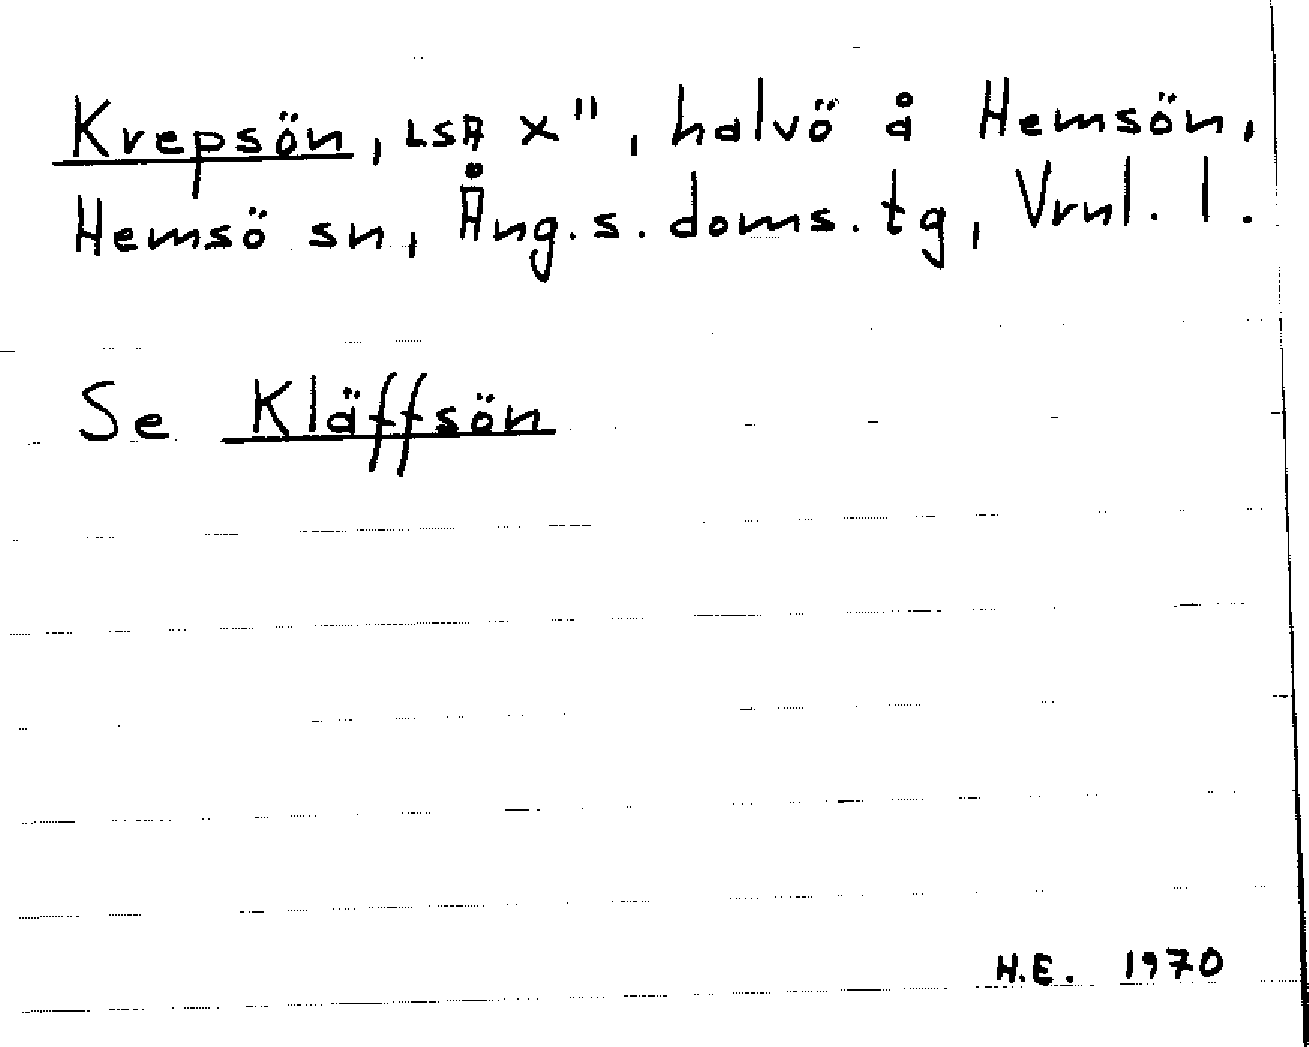 Krepsön, LSA X", halvö å Hemsön,
Hemsö sn, Ång.s.doms.tg, Vrnl. l.
Se Kläffsön
H.E. 1970